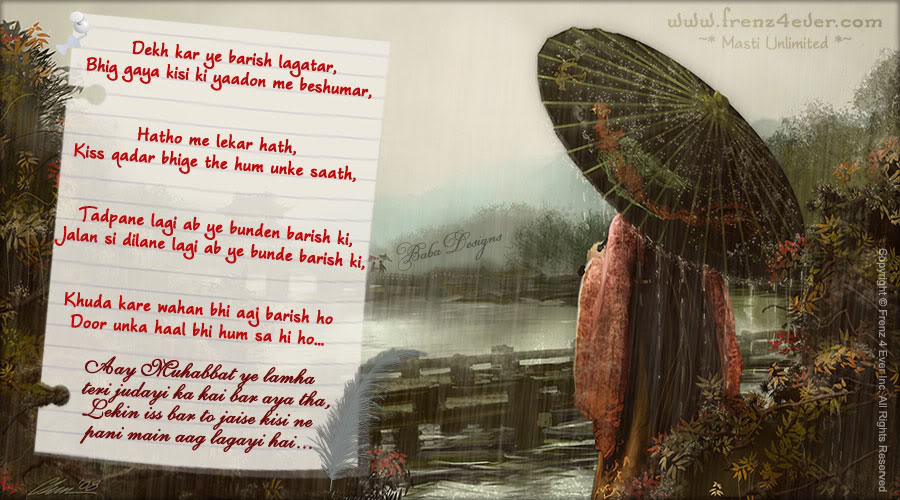 www.frenz4ever.com
~* Masti Unlimited *~
Dekh kar ye barish lagatar,
Bhig gaya kisi ki yaadon me beshumar,
Hatho me lekar hath,
Kiss qadar bhige the hum unke saath,
Tadpane lagi ab ye bunden barish ki,
Jalan si dilane lagi ab ye bunde barish ki,
Khuda kare wahan bhi aaj barish ho
Door unka haal bhi hum sa hi ho...
Aay Muhabbat ye lamha
teri judayi ka kai bar aya tha,
Lekin iss bar to jaise kisi ne
pani main aag lagayi hai...
Baba Designs
Copyright © Frenz 4 Ever Inc. All Rights Reserved